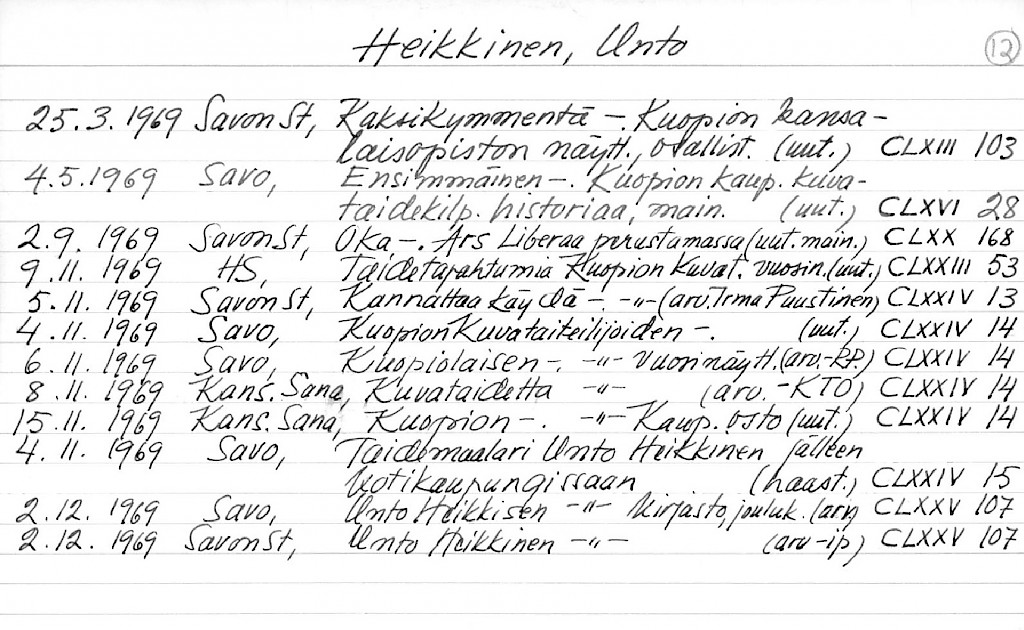 Heikkinen, Unto
12
25.3.1969 Savon St, Kaksikymmentä -. Kuopion kansa-
laisopiston näytt., osallist. (uut.) CLXIII 103
4.5.1969 Savo, Ensimmäinen -. Kuopion kaup. kuva-
taidekilp. historiaa, main. (uut.) CLXVI 28
2.9. 1969 Savon St, Oka -. Ars Liberaa perustamassa (uut. main.) CLXX 168
9.11. 1969 HS, Taidetapahtumia Kuopion Kuvat. vuosin. (uut.) CLXXIII 53
5.11. 1969 Savon St, Kannattaa käydä -. -"- (arv. Irma Puustinen) CLXXIV 13
4.11. 1969 Savo, Kuopion Kuvataiteilijoiden -. (uut.) CLXXIV 14
6.11. 1969 Savo, Kuopiolaisen -. -"- vuosinäytt. (arv.-RP.) CLXXIV 14
8.11. 1969 Kans. Sana, Kuvataidetta -"- (arv. -KTO) CLXXIV 14
15.11. 1969 Kans. Sana, Kuopion -. -"- Kaup. osto (uut.) CLXXIV 14
4.11. 1969 Savo, Taidemaalari Unto Heikkinen jälleen
kotikaupungissaan (haast.) CLXXIV 15
2.12. 1969 Savo, Unto Heikkisen -"- kirjasto, jouluk. (arv) CLXXV 107
2.12. 1969 Savon St, Unto Heikkinen -"- (arv -ip) CLXXV 107